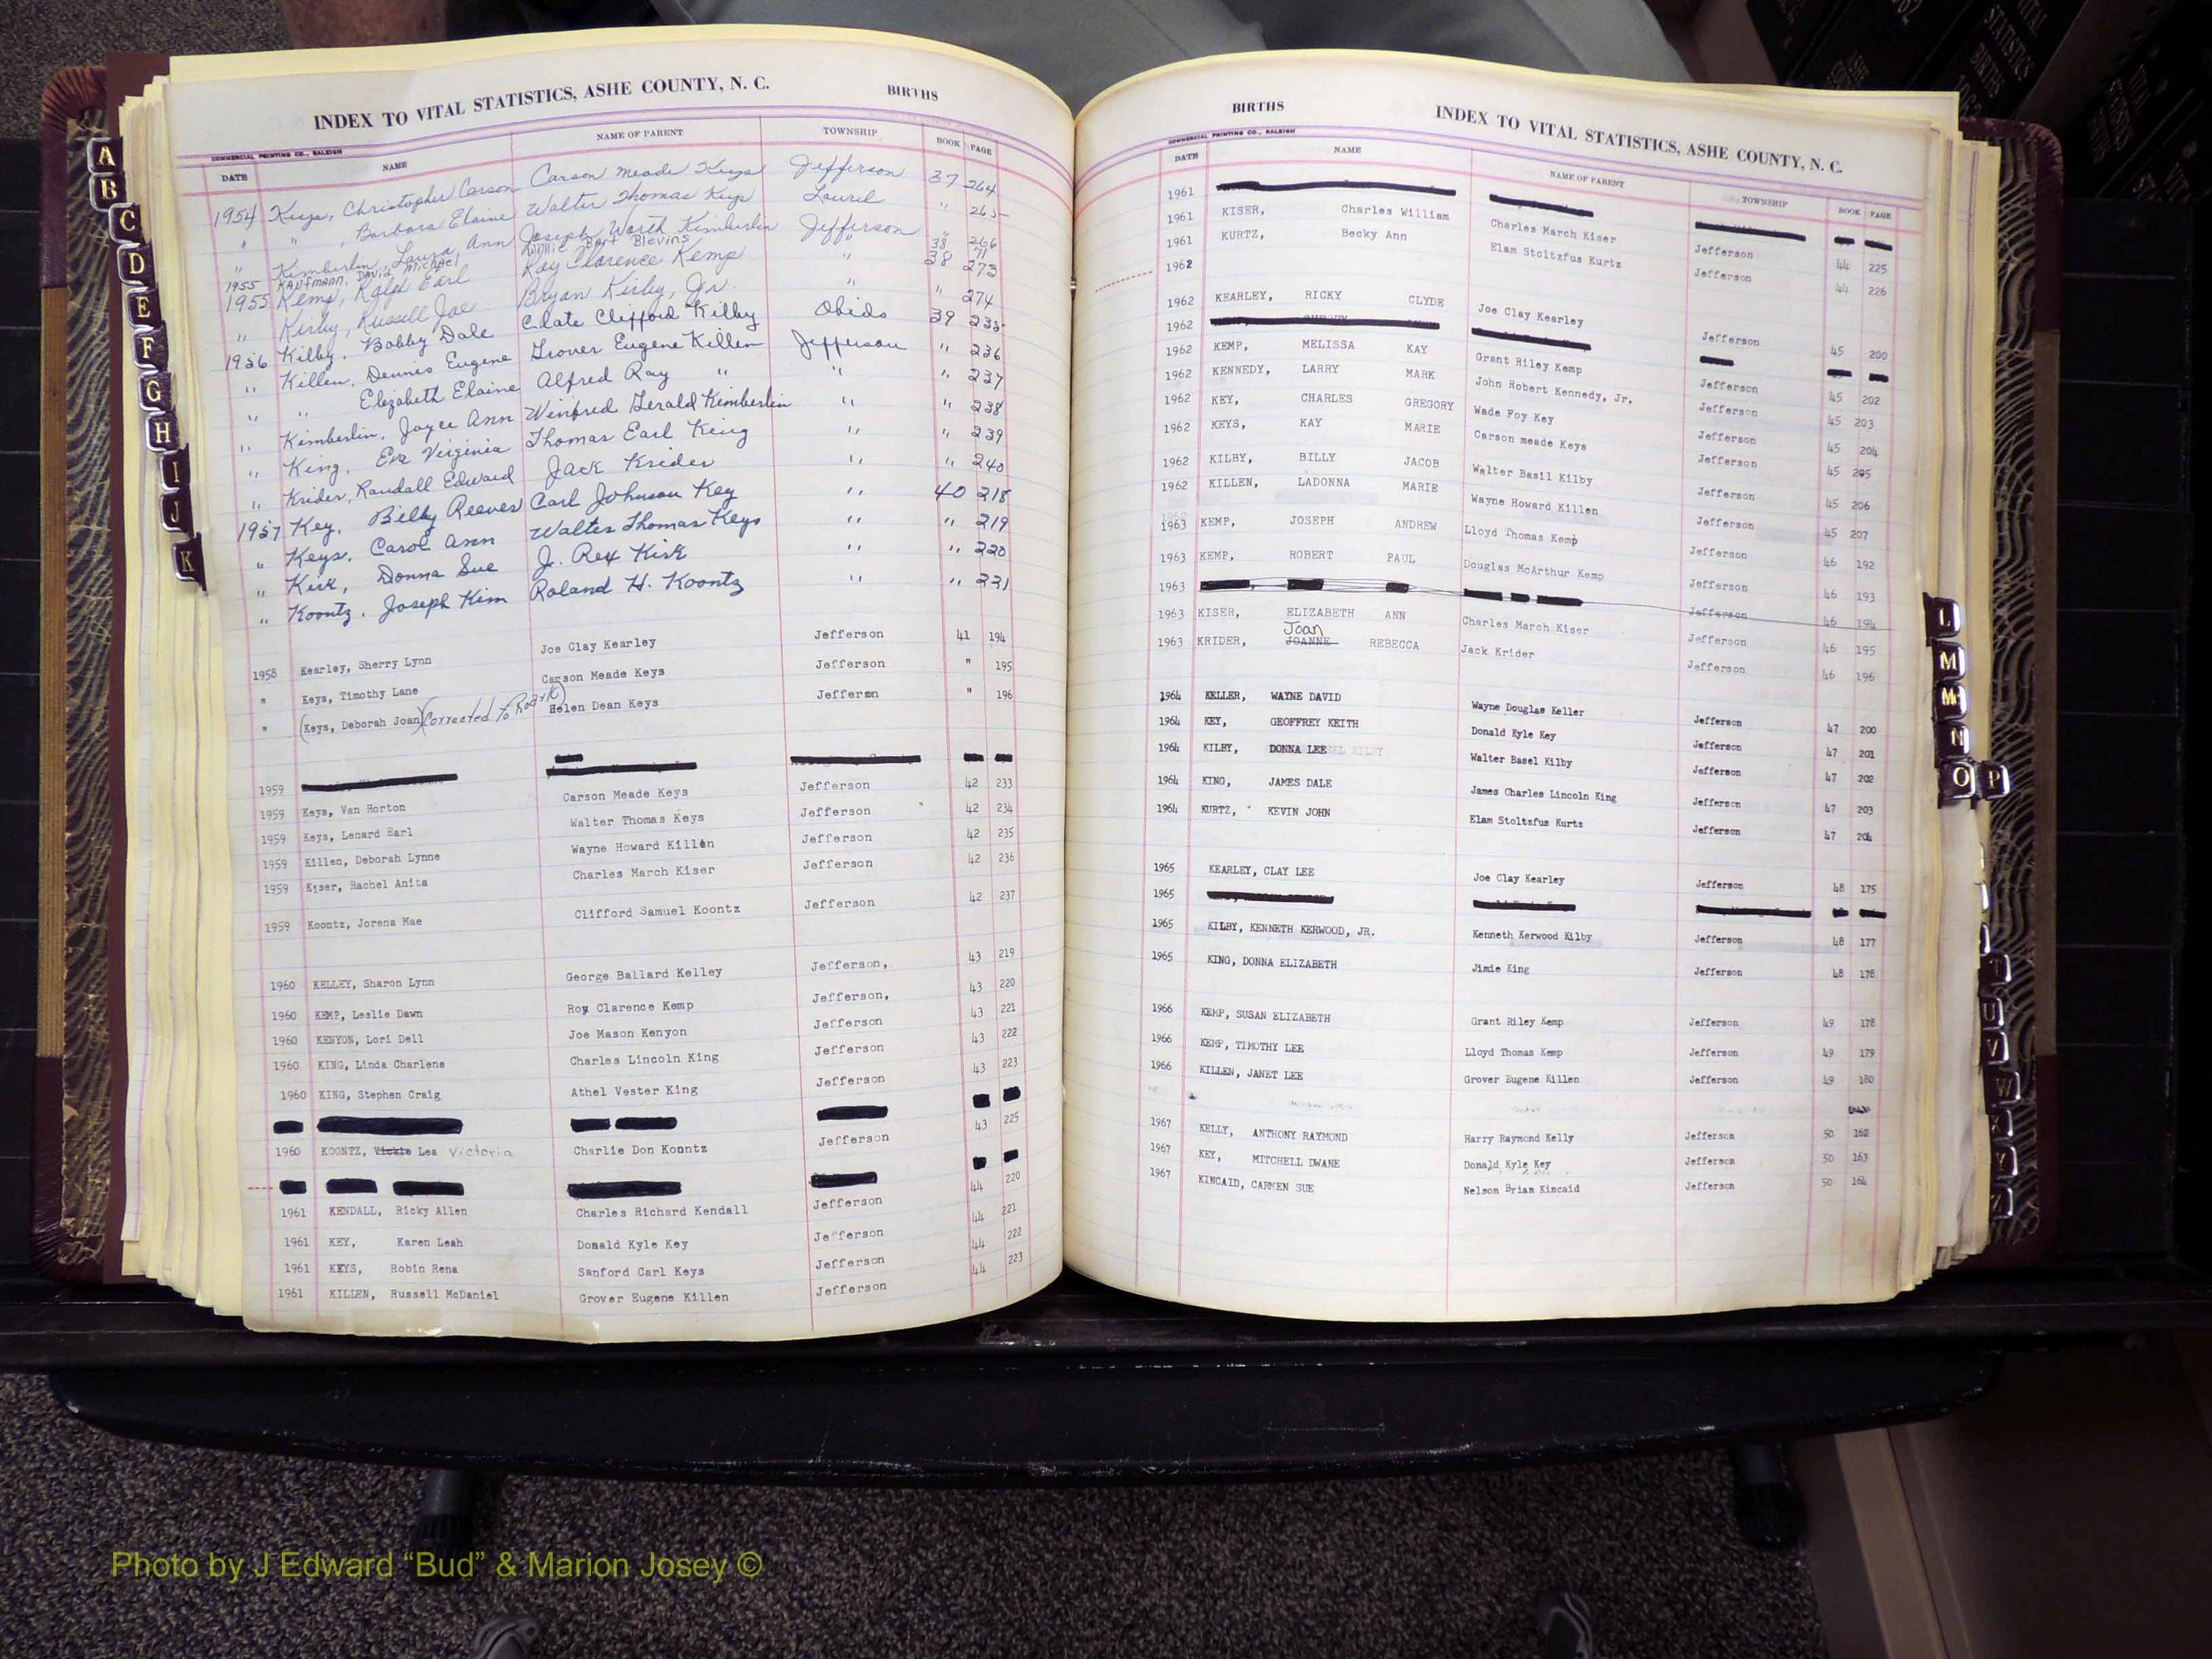 INDEX TO VITAL STATISTICS, ASHE COUNTY, N. C. BIRTHS
COMMERCIAL PRINTING CO., RALEIGH
DATE NAME NAME OF PARENT TOWNSHIP BOOK PAGE
1954 Keys, Christopher Carson Carson Meade Keys Jefferson 37 264
" " , Barbara Elaine Walter Thomas Keys Laurel " 265
" Kimberlin, Laura Ann Joseph Worth Kimberlin Jefferson 38 266
1955 Kaufmann, David Michael Willie Bert Blevins " 71
1955 Kemp, Earl Roy Clarence Kemp " 38 273
" Kirby, Russell Joe Bryan Kirby, Jr. " " 274
1956 Kilby, Bobby Dale Clate Clifford Kilby Obids 39 235
" Killen, Dennis Eugene Grover Eugene Killen Jefferson " 236
" " Elizabeth Elaine Alfred Ray " " " 237
" Kimberlin, Joyce Ann Winfred Gerald Kimberlin " " 238
" King, Eva Virginia Thomas Earl King " " 239
" Krider, Randall Edward Jack Krider " " 240
1957 Key, Billy Reeves Carl Johnson Key " 40 218
" Keys, Carol Ann Walter Thomas Keys " " 219
" Kirk, Donna Sue J. Rex Kirk " " 220
" Koontz, Joseph Kim Roland H. Koontz " " 221
1958 Kearley, Sherry Lynn Joe Clay Kearley Jefferson 41 194
" Keys, Timothy Lane Carson Meade Keys Jefferson " 195
" (Keys, Deborah Joan) (Corrected to Helen Dean Keys Jeffersn " 196
1959
1959 Keys, Van Horton Carson Meade Keys Jefferson 42 233
1959 Keys, Lenard Earl Walter Thomas Keys Jefferson 42 234
1959 Killen, Deborah Lynne Wayne Howard Killen Jefferson 42 235
1959 Kiser, Rachel Anita Charles March Kiser Jefferson 42 236
1959 Koontz, Jorena Mae Clifford Samuel Koontz Jefferson 42 237
1960 KELLEY, Sharon Lynn George Ballard Kelley Jefferson, 43 219
1960 KEMP, Leslie Dawn Roy Clarence Kemp Jefferson, 43 220
1960 KENYON, Lori Dell Joe Mason Kenyon Jefferson 43 221
1960 KING, Linda Charlene Charles Lincoln King Jefferson 43 222
1960 KING, Stephen Craig Athel Vester King Jefferson 43 223
1960 KOONTZ, Vickie Lea Victoria Charlie Don Koontz Jefferson 43 225
1961 KENDALL, Ricky Allen Charles Richard Kendall Jefferson 44 220
1961 KEY, Karen Leah Donald Kyle Key Jefferson 44 221
1961 KEYS, Robin Rena Sanford Carl Keys Jefferson 44 222
1961 KILLEN, Russell McDaniel Grover Eugene Killen Jefferson 44 223
A
B
C
D
E
F
G
H
I
J
K
BIRTHS INDEX TO VITAL STATISTICS, ASHE COUNTY, N. C.
COMMERCIAL PRINTING CO., RALEIGH
DATE NAME NAME OF PARENT TOWNSHIP BOOK PAGE
1961
1961 KISER, Charles William Charles March Kiser Jefferson 44 225
1961 KURTZ, Becky Ann Elam Stoltzfus Kurtz Jefferson 44 226
1962
1962 KEARLEY, RICKY CLYDE Joe Clay Kearley Jefferson 45 200
1962
1962 KEMP, MELISSA KAY Grant Riley Kemp Jefferson 45 202
1962 KENNEDY, LARRY MARK John Robert Kennedy, Jr. Jefferson 45 203
1962 KEY, CHARLES GREGORY Wade Foy Key Jefferson 45 204
1962 KEYS, KAY MARIE Carson meade Keys Jefferson 45 205
1962 KILBY, BILLY JACOB Walter Basil Kilby Jefferson 45 206
1962 KILLEN, LADONNA MARIE Wayne Howard Killen Jefferson 45 207
1963 KEMP, JOSEPH ANDREW Lloyd Thomas Kemp Jefferson 46 192
1963 KEMP, ROBERT PAUL Douglas McArthur Kemp Jefferson 46 193
1963 Jefferson 46 194
1963 KISER, ELIZABETH ANN Charles March Kiser Jefferson 46 195
Joan
1963 KRIDER, JOANNE REBECCA Jack Krider Jefferson 46 196
1964 KELLER, WAYNE DAVID Wayne Douglas Keller Jefferson 47 200
1964 KEY, GEOFFREY KEITH Donald Kyle Key Jefferson 47 201
1964 KILBY, DONNA LEE Walter Basel Kilby Jefferson 47 202
1964 KING, JAMES DALE James Charles Lincoln King Jefferson 47 203
1964 KURTZ, KEVIN JOHN Elam Stoltzfus Kurtz Jefferson 47 204
1965 KEARLEY, CLAY LEE Joe Clay Kearley Jefferson 48 175
1965
1965 KILBY, KENNETH KERWOOD, JR. Kenneth Kerwood Kilby Jefferson 48 177
1965 KING, DONNA ELIZABETH Jimie King Jefferson 48 178
1966 KEMP, SUSAN ELIZABETH Grant Riley Kemp Jefferson 49 178
1966 KEMP, TIMOTHY LEE Lloyd Thomas Kemp Jefferson 49 179
1966 KILLEN, JANET LEE Grover Eugene Killen Jefferson 49 180
1967 KELLY, ANTHONY RAYMOND Harry Raymond Kelly Jefferson 50 162
1967 KEY, MITCHELL DWANE Donald Kyle Key Jefferson 50 163
1967 KINCAID, CARMEN SUE Nelson Brian Kincaid Jefferson 50 164
L
M
Mc
N
O P
T
U
V
W
Y
Z
VITAL STATISTICS BIRTHS
Photo by J Edward “Bud” & Marion Josey ©